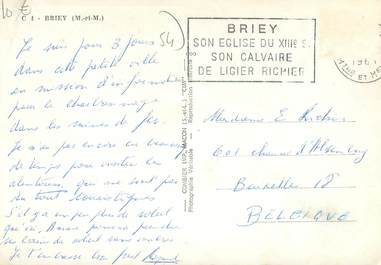 10 €
C 1 - BRIEY (M.-et-M.)
54
Je suis pour 3 jours
dans cette petite ville
en mission d'information
pour le
dans les mines de fer.
Je n'ai pas encore eu beaucoup
de temps pour visiter les
alentours, qui ne sont pas
du tout touristiques
S'il y a un peu plus de soleil
qu'
de soleil sans
Je t'embrasse bien fort
COMBIER IMP. MACON (S.-et-L.) "CIM"
Photographie Véritable - Reproduction interdite
BRIEY
SON EGLISE DU XIIIe S.
SON CALVAIRE
DE LIGIER RICHIER
196
Madame E.
601 chaussée d'Alsemberg
Bruxelles 18
BELGIQUE